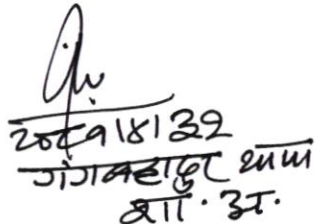 २०८१।४।३२
गंगबहादुर थापा
शा. अ.